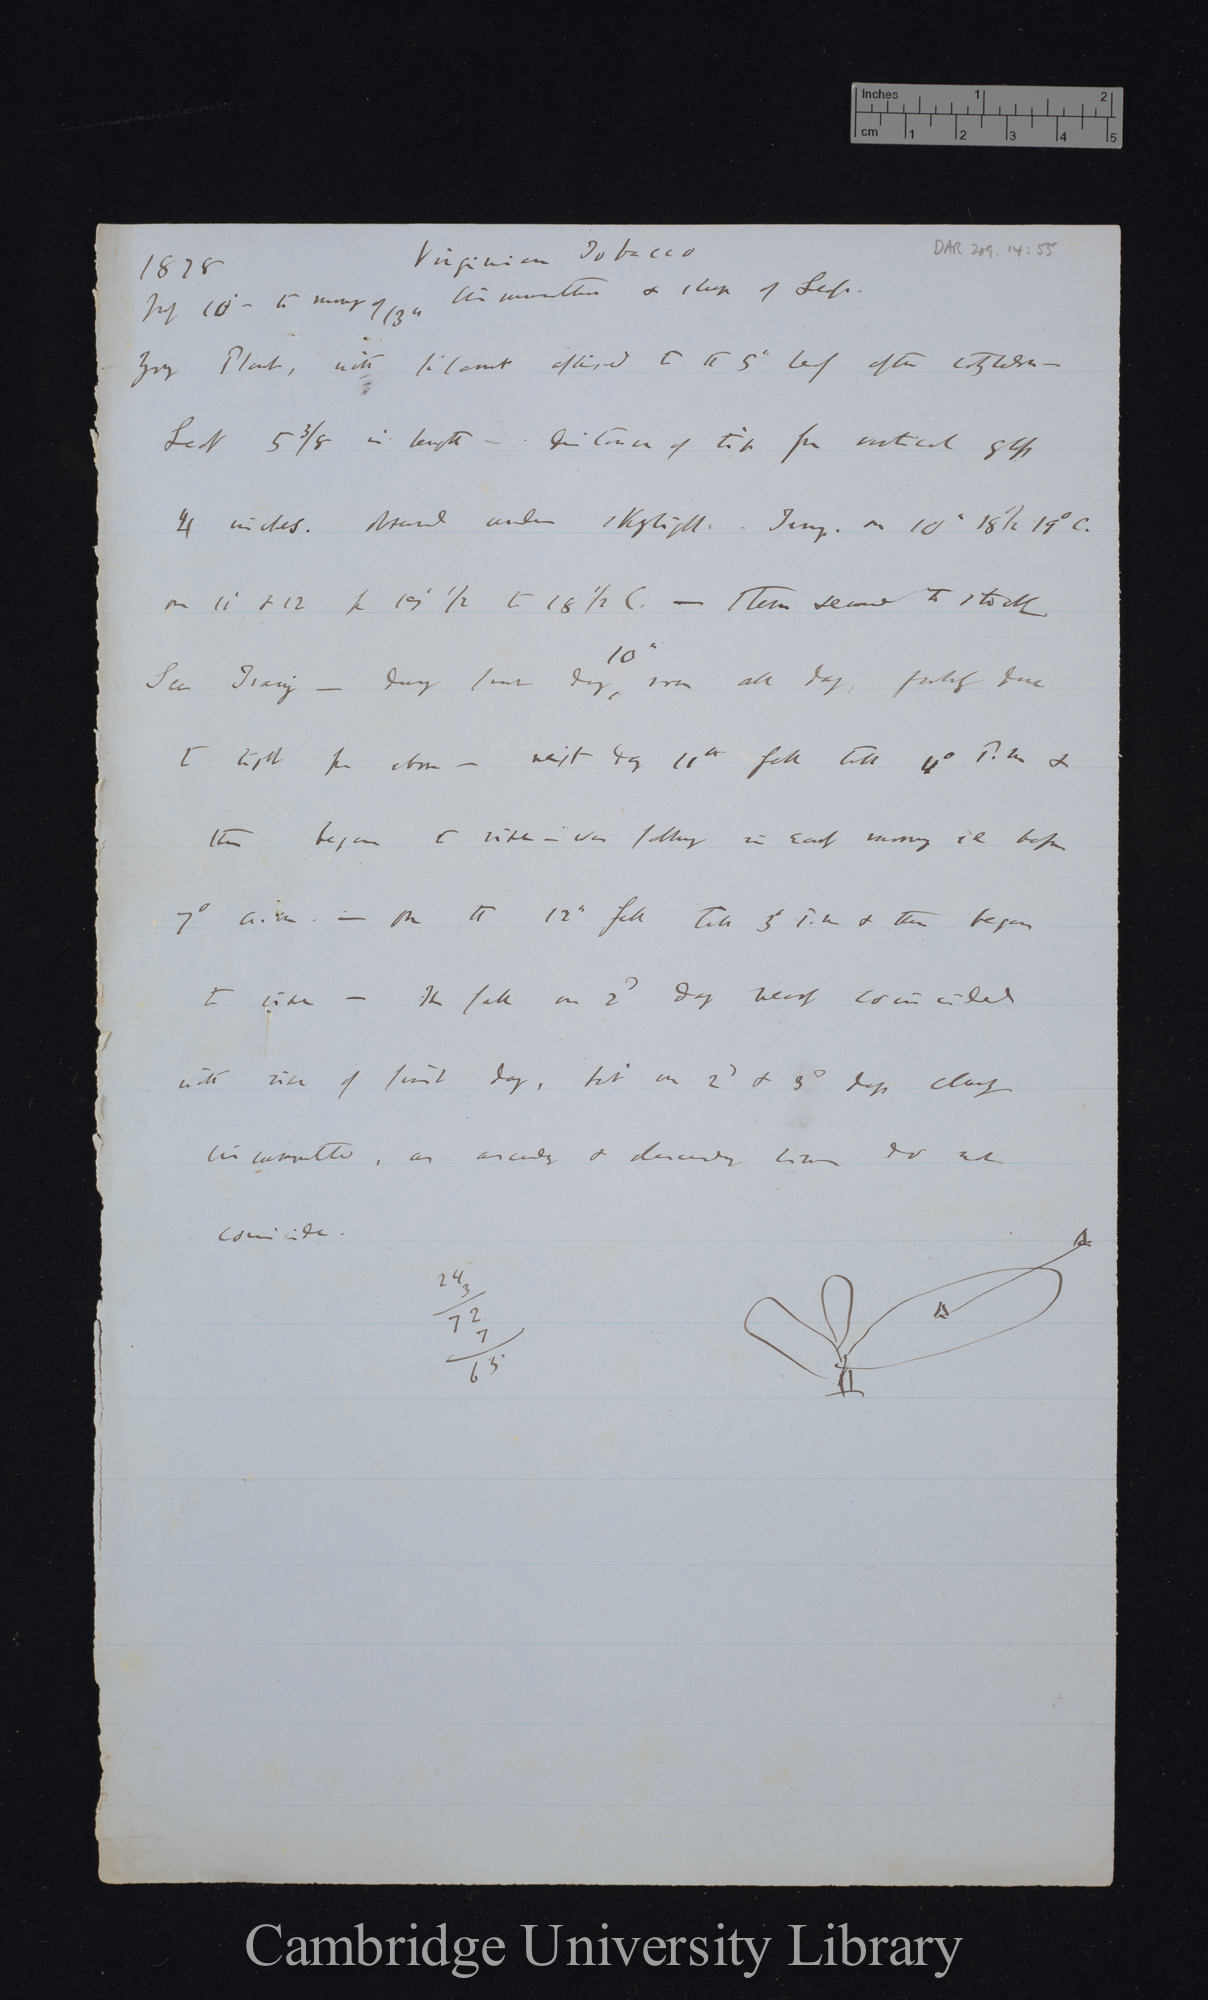 Inches 1 2
cm 1 2 3 4 5
DAR 209.14:55
1878 Virginian Tobacco
July 10th – to morning of 13th Circumnutation & sleep of Leaf.
Young Plant, with filament affixed to the 5th leaf after cotyledons –
Leaf 5 3/8 in length – distance of tip from vertical glass
4 inches. Observed under skylight. Temp. on 10th 18 1/2 19° C.
on 11 & 12 fr 19 1/2 to 18 1/2 C. — Stem secured to stick
See Tracing — during first day, 10th rose all day, probably due
to light from above — next day 11th fell till 4° P.m &
then began to rise – was falling in early morning ie before
7° a.m. — on the 12th fell till 3° P.m & then began
to rise — The fall on 2d day nearly coincided
with rise of first day, but on 2d & 3d days clearly
circumnutated, as ascending & descending lines do not
coincide.
24
3
72
7
65